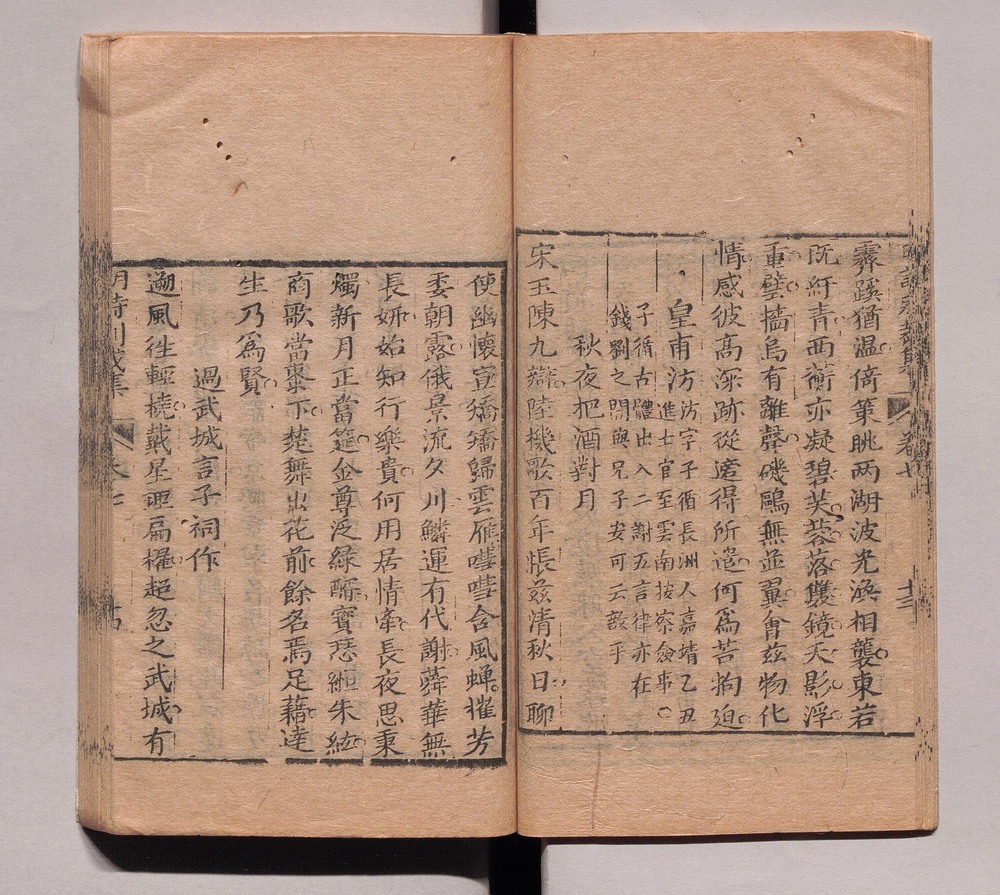 明詩別裁集 卷七 十三
霽蹊猶温倚策眺两湖波光渙相襲東若
既紆青西蘅亦凝碧芙蓉落雙鏡天影浮
重壁檣烏有離聲磯鷗無並翼會茲物化
情感彼高深跡從遊得所遣何爲苦拘迫
皇甫汸 汸字子循長洲人嘉靖乙丑
進士官至雲南按察僉事○
子循古體出入二謝五言律亦在
錢劉之間與兄子安可云敵乎
秋夜把酒對月
宋玉陳九辯陸機歌百年悵茲清秋日聊
使幽懷宣矯矯歸雲雁嘒嘒含風蟬摧芳
委朝露俄景流夕川鱗運有代謝蕣華無
長妍始知行樂貴何用居情牽長夜思秉
燭新月正當筵金尊泛緑醑寶瑟緪朱絃
商歌當棗下楚舞出花前餘名焉足藉達
生乃爲賢
過武城言子祠作
遡風徃輕橈戴星理扁櫂超忽之武城有
明詩別裁集 卷七 十四